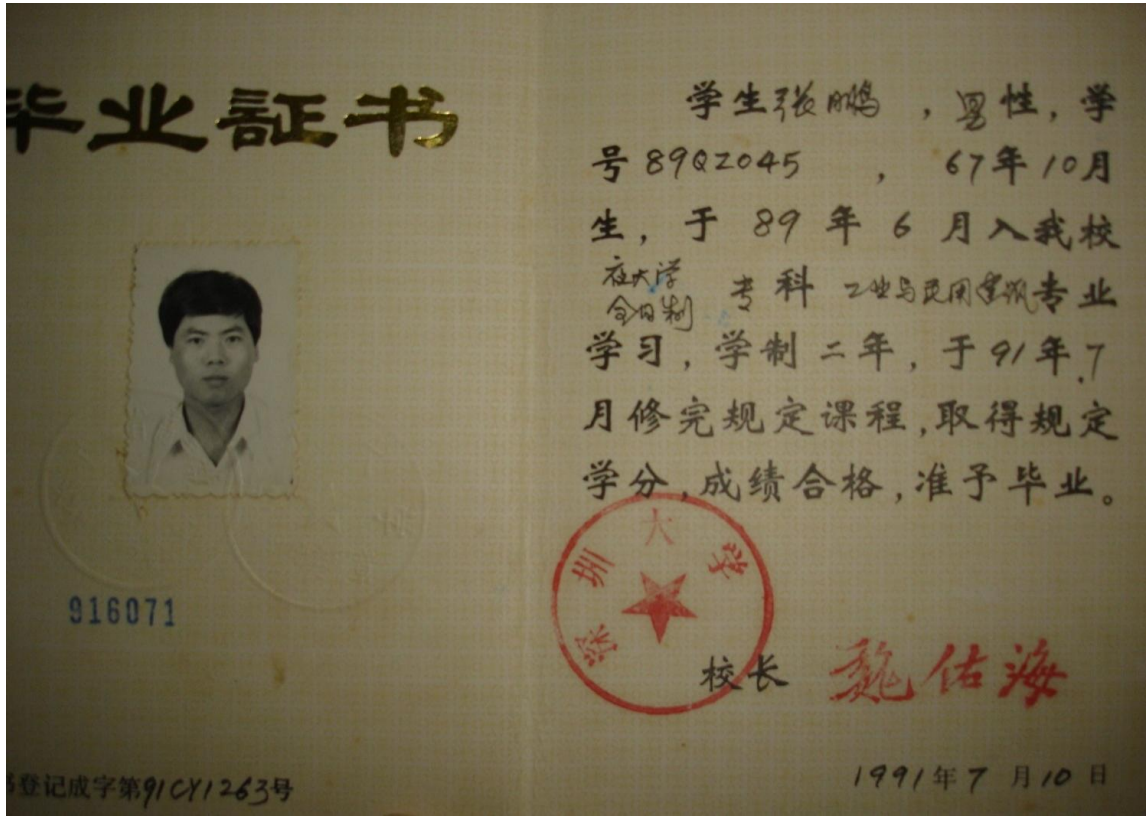 毕业証书
916071
书登记成字第91CY1263号
学生张鹏，男性，学
号89QZ045，67年10月
生，于89年6月入我校
在大学
全日制
专科工业与民用建筑专业
学习，学制二年，于91年7
月修完规定课程，取得规定
学分，成绩合格，准予毕业。
深圳大学
校长 魏佑海
1991年7月10日